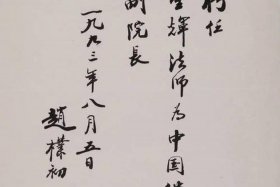 任
輝法師為中国
副院長
一九九三年八月五日
趙樸初